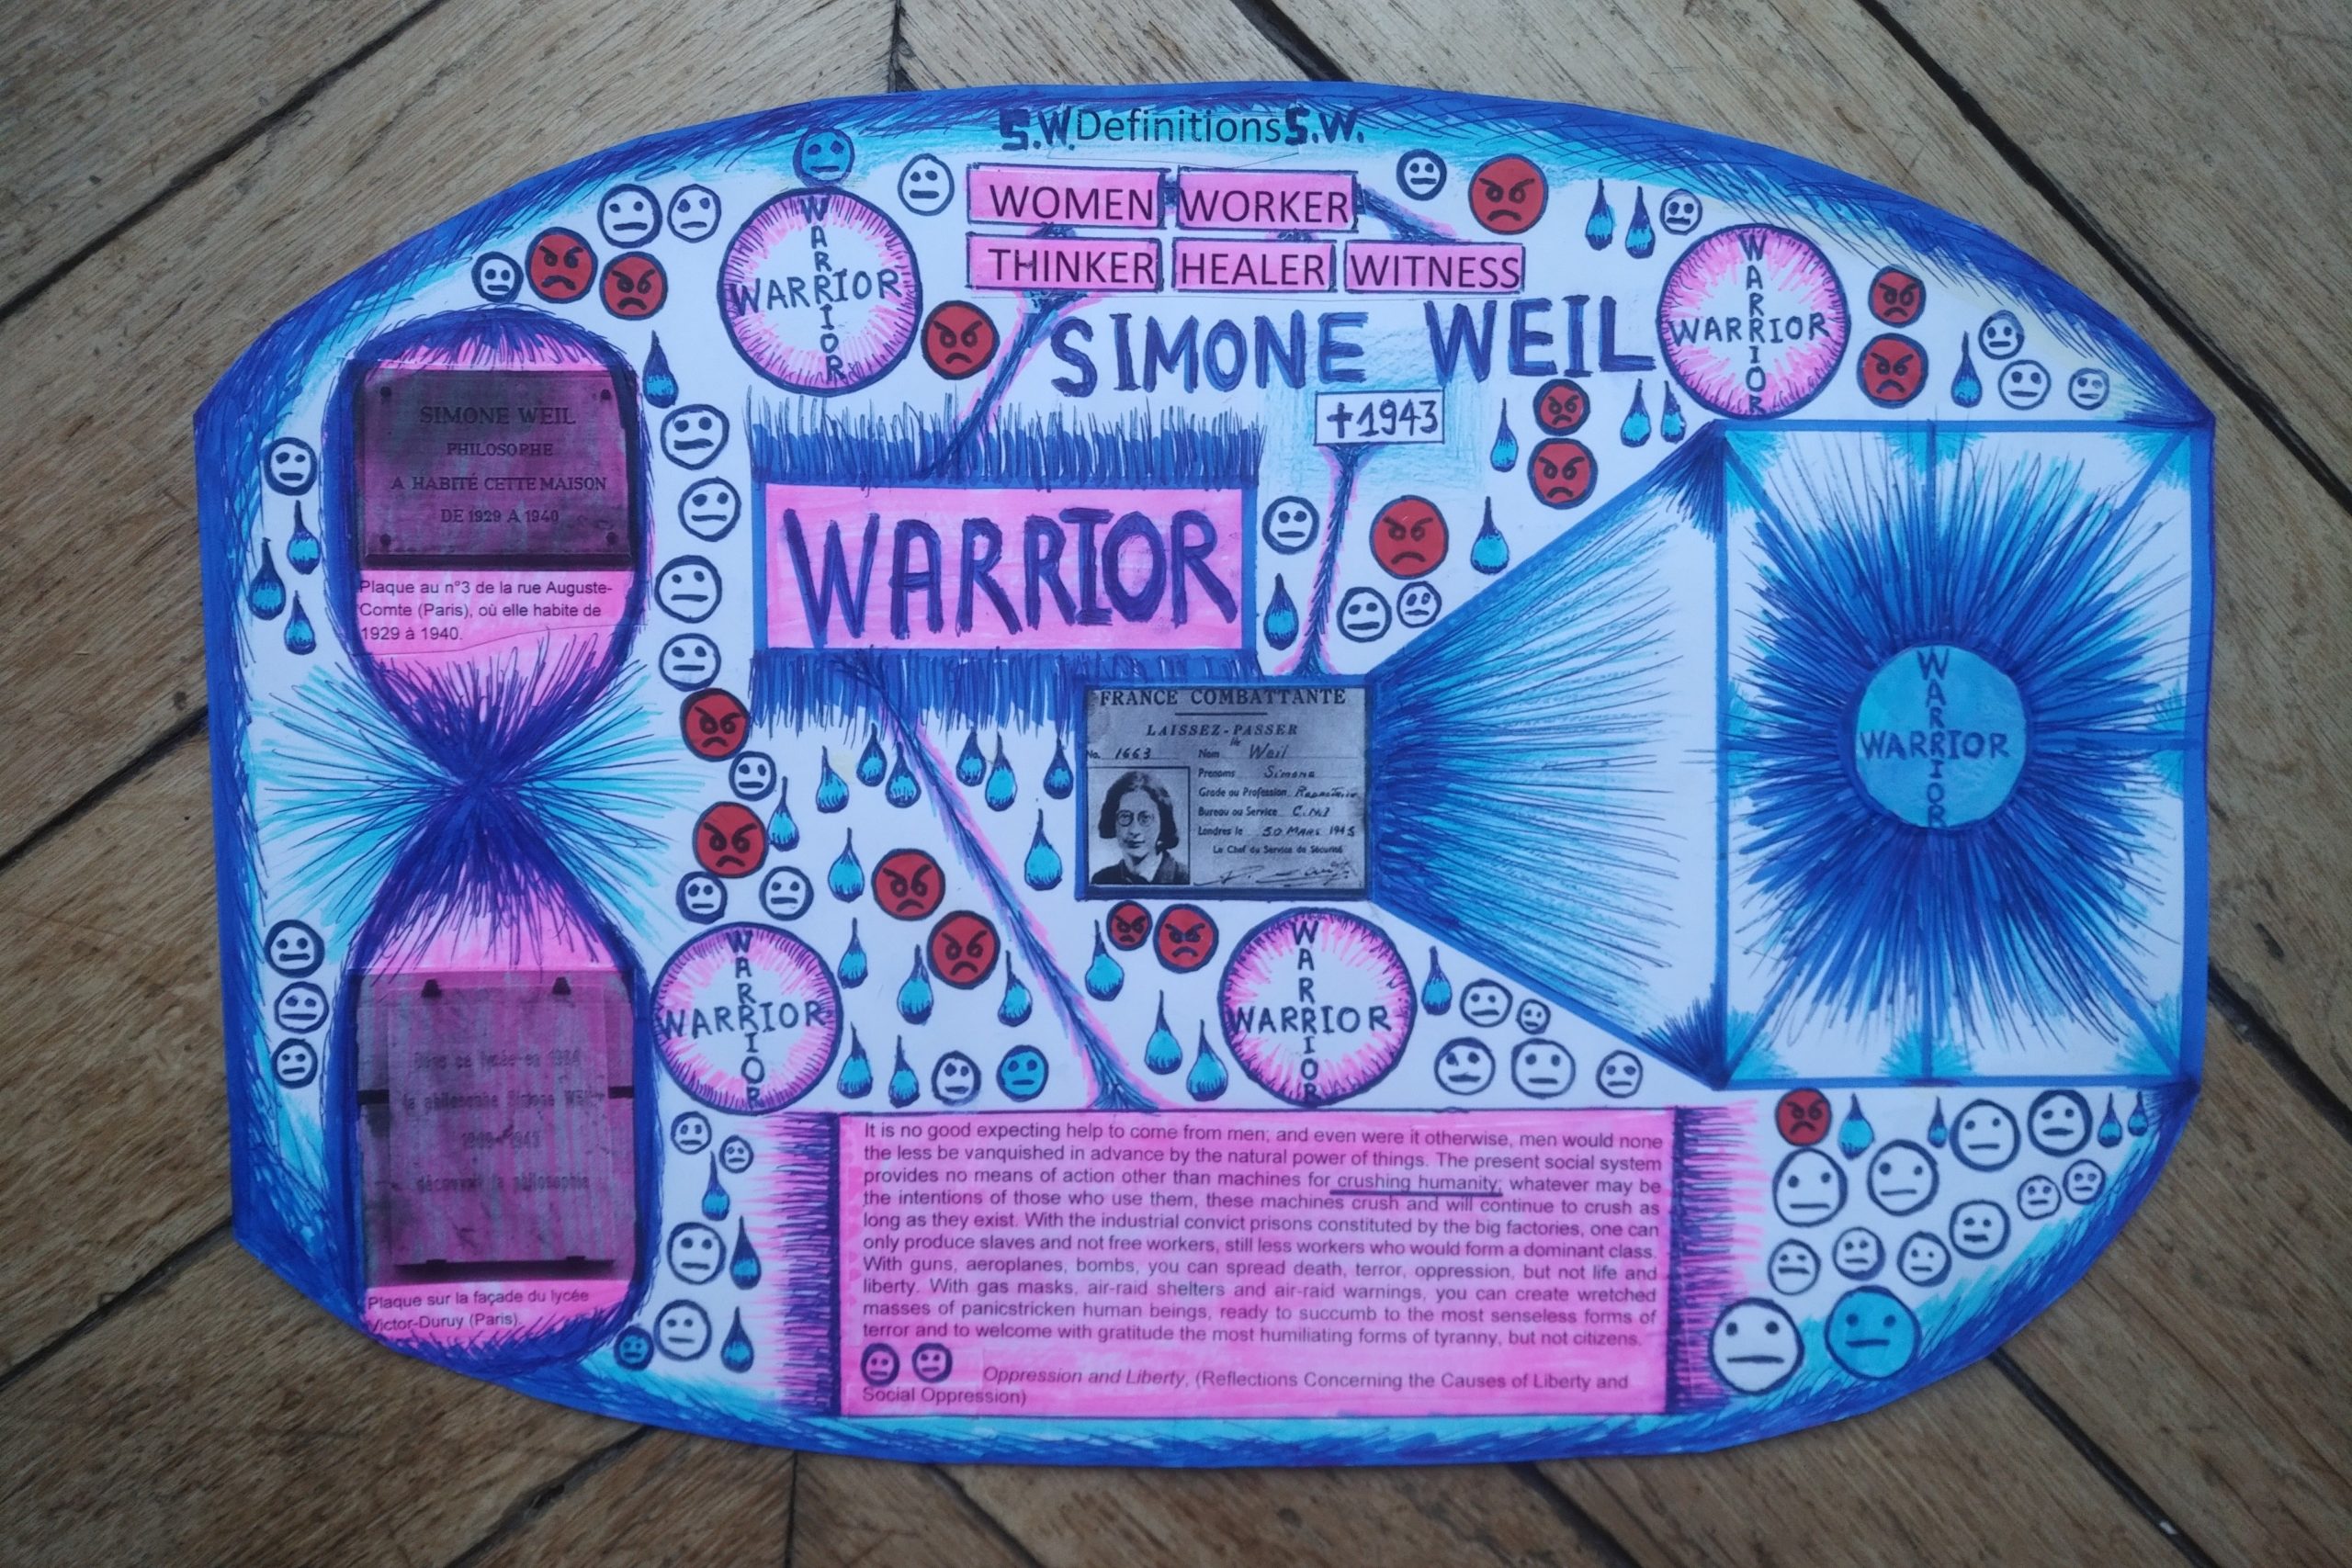 S.W. Definitions S.W.
WOMEN WORKER
THINKER HEALER WITNESS
SIMONE WEIL
+1943
WARRIOR
WARRIOR
WARRIOR
WARRIOR
SIMONE WEIL
PHILOSOPHE
A HABITÉ CETTE MAISON
DE 1929 A 1940
Plaque au n°3 de la rue Auguste-
Comte (Paris), où elle habite de
1929 à 1940.
WARRIOR
FRANCE COMBATTANTE
LAISSEZ-PASSER
No. 1663 Nom Mlle Weil
Prenoms Simone
Grade ou Profession
Bureau ou Service
Londres le 30 MARS 194
Le Chef du Service de Sécurité
WARRIOR
WARRIOR
WARRIOR
WARRIOR
WARRIOR
WARRIOR
Dans ce lycée en
la philosophe Simone Weil
découvrit la philosophie
Plaque sur la façade du lycée
Victor-Duruy (Paris).
It is no good expecting help to come from men; and even were it otherwise, men would none
the less be vanquished in advance by the natural power of things. The present social system
provides no means of action other than machines for crushing humanity; whatever may be
the intentions of those who use them, these machines crush and will continue to crush as
long as they exist. With the industrial convict prisons constituted by the big factories, one can
only produce slaves and not free workers, still less workers who would form a dominant class.
With guns, aeroplanes, bombs, you can spread death, terror, oppression, but not life and
liberty. With gas masks, air-raid shelters and air-raid warnings, you can create wretched
masses of panicstricken human beings, ready to succumb to the most senseless forms of
terror and to welcome with gratitude the most humiliating forms of tyranny, but not citizens.
Oppression and Liberty, (Reflections Concerning the Causes of Liberty and
Social Oppression)